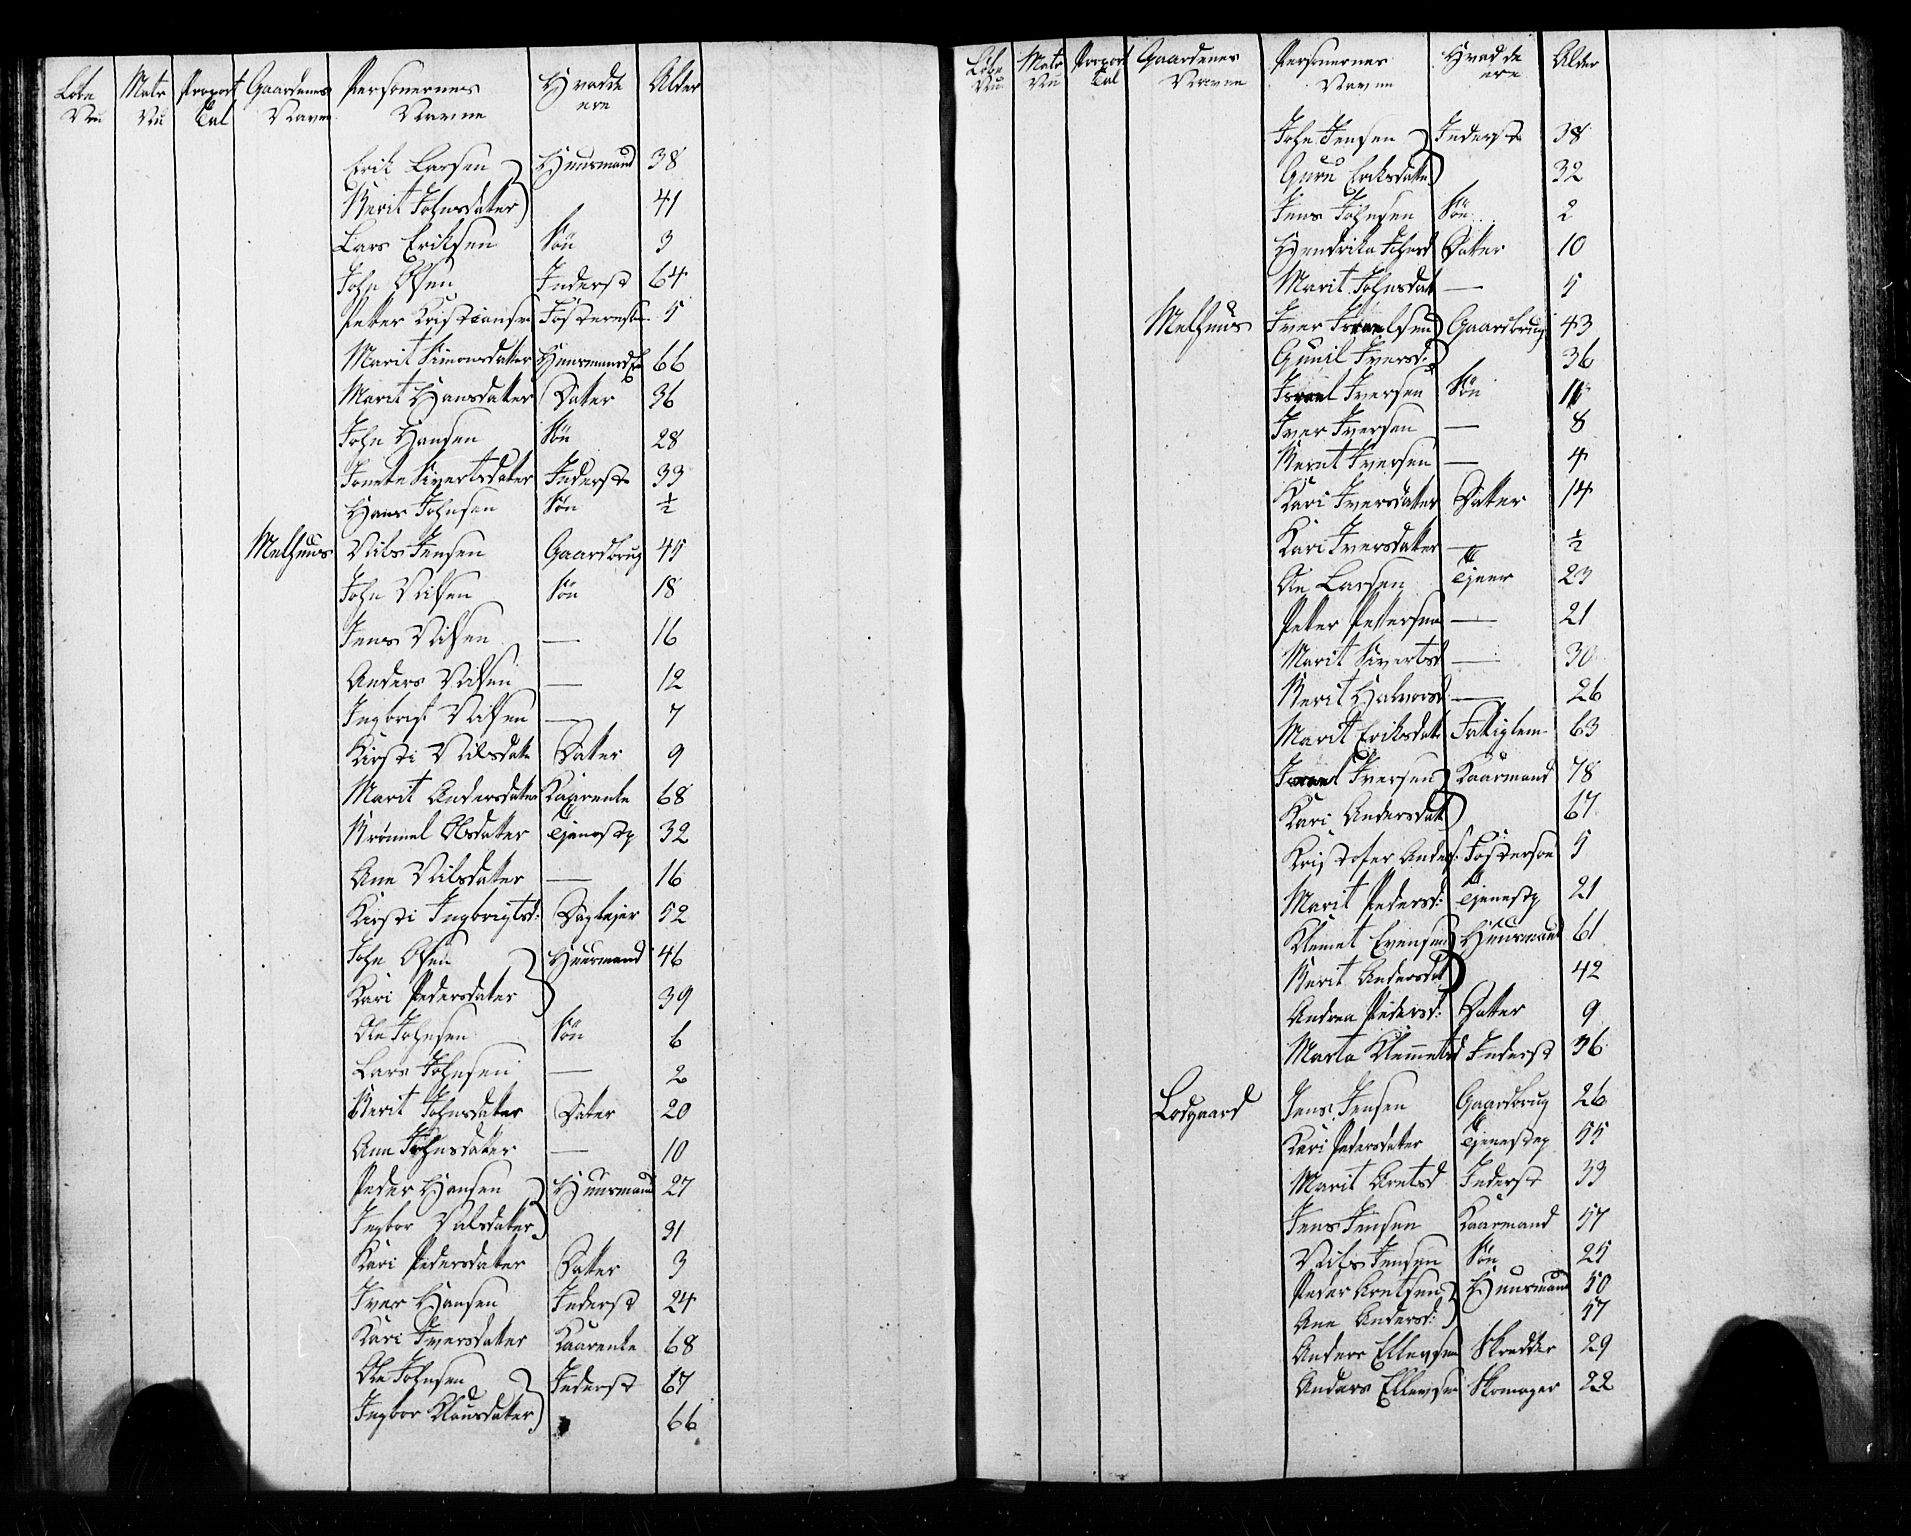 Løbe Nu | Matr Nu | Proport Tal | Gaardenes Navne | Personernes Navne | Hvad de ere | Alder
Erik Larsen | Huusmand | 38
Berit Johnsdatter | 41
Lars Eriksen | Søn | 3
John Olsen | Inderst | 64
Petter Kristiansen | Fostersøn | 5
Marit Simonsdatter | Huusmands | 66
Marit Hansdatter | Datter | 36
John Hansen | Søn | 28
Jonete Sivertsdater | Inderst | 33
Hans Johnsen | Søn | ½
Melhuus | Nils Jensen | Gaardbrug | 45
John Nilsen | Søn | 18
Jens Nilsen | — | 16
Anders Nilsen | — | 12
Ingbrigt Nilsen | — | 7
Kirsti Nilsdatt | Datter | 9
Marit Andersdater | Kaarente | 68
Brønnel Olsdatter | Tjenestp | 32
Ane Nilsdatter | — | 16
Kirsti Ingbrigtsd: | Daglejer | 52
John Olsen | Huusmand | 46
Kari Pedersdater | 39
Ole Johnsen | Søn | 6
Lars Johnsen | — | 2
Berit Johnsdater | Dater | 20
Ane Johnsdater | — | 10
Peder Hansen | Huusmand | 27
Ingbor Nilsdater | 31
Kari Pedersdater | Datter | 3
Iver Hansen | Inderst | 24
Kari Iversdatter | Kaarente | 68
Ole Johnsen | Inderst | 67
Ingbor Klausdater | 66
Løbe Nu | Matr Nu | Proport Tal | Gaardenes Navne | Personernes Navne | Hvad de ere | Alder
John Jensen | Inderst | 38
Guru Eriksdatte | 32
Jens Johnsen | Søn | 2
Hendrika Johnsd | Datter | 10
Marit Johnsdat | — | 5
Melhuus | Iver Israelsen | Gaardbrug | 43
Gunil Iversd: | 36
Israel Iversen | Søn | 11
Iver Iversen | — | 8
Bernt Iversen | — | 4
Kari Iversdatter | Datter | 14
Kari Iversdatter | — | ½
Ole Larsen | Tjener | 23
Petter Pettersen | — | 21
Marit Sivertsd | — | 30
Berit Halvorsd | — | 26
Marit Eriksdatt | Fattiglem | 63
Israel Iversen | Kaarmand | 78
Kari Andersdat | 67
Kristofer Anders. | Fostersøn | 5
Marit Pedersd: | Tjenestp | 21
Klemet Evensen | Huusmand | 61
Berit Andersdat | 42
Andrea Pedersd: | Datter | 9
Marta Klemmetsd | Inderst | 36
Lodgaard | Jens Jensen | Gaardbrug | 26
Kari Pedersdatter | Tjenestep | 55
Marit Arntsd | Inderst | 33
Jens Jensen | Kaarmand | 57
Nils Jensen | Søn | 25
Peder Arntsen | Huusmand | 50
Ane Andersd: | 57
Anders Ellevsen | Skredder | 29
Anders Ellevsen | Skomager | 22